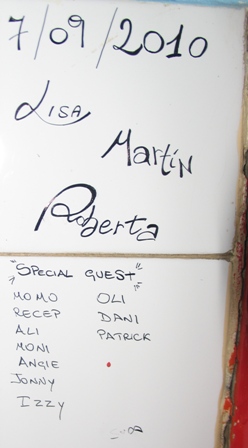 7/09/2010
Lisa
Martin
Roberta
"SPECIAL GUEST"
MOMO OLI
RECEP DANI
ALI PATRICK
MONI
ANGIE
JONNY
IZZY